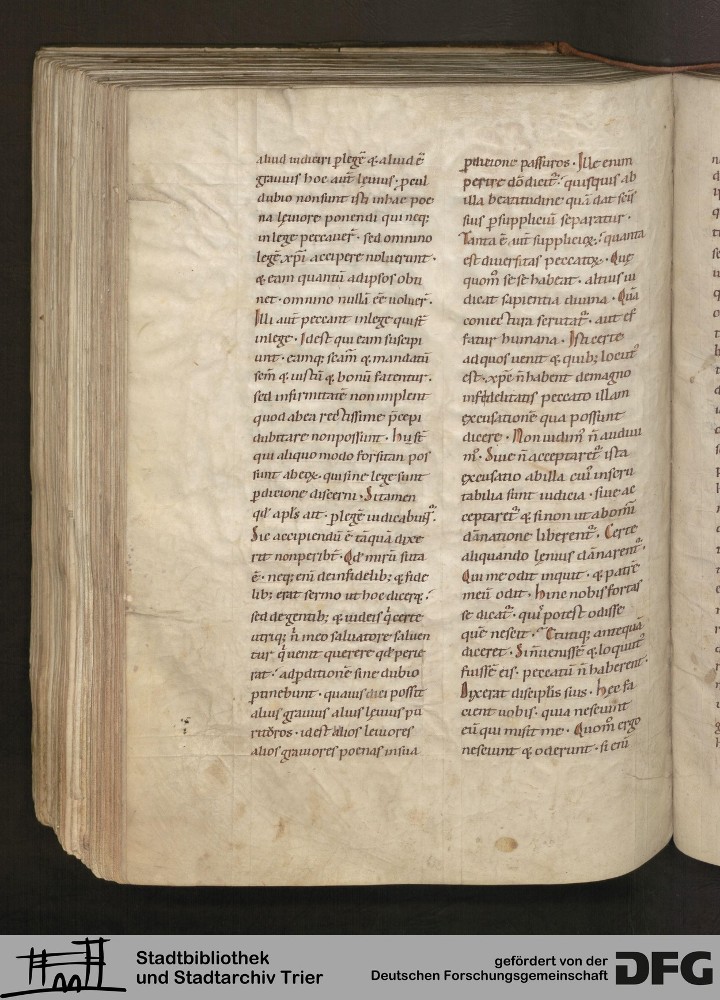 aliud iudiciri ꝑlegē ⁊ aliud ē
grauius hoc aut̄ lęuius · ꝓcul
dubio nonsunt isti inhac poe
na lęuiore ponendi qui neq;
inlege peccauer̄ · sed omnino
legē xp̄i accipere noluerunt ·
⁊ eam quantū adipsos obti
net · omnino nullā eē̄ uoluer̄ ·
Illi aut̄ peccant inlege quist̄
inlege · Idest qui eam suscipi
unt · eamq; sc̄am ⁊ mandatū
sc̄m ⁊ iustū ⁊ bonū fatentur ·
sed infirmitate nonimplent
quod abea rectissime p̄cepi
dubitare nonpossunt · hi st̄
qui aliquo modo forsitan pos
sunt abeis · qui sine lege sunt
ꝑdicione discerni · Si tamen
qđ apl̄s ait · ꝑlegē iudicabunt᷑ ·
Sic accipiendū ē tāquā dixe
rit nonperibt̄ · Qđ mirū si ita
ē · neq; eni deinfidelib; ⁊ fide
lib; erat sermo ut hoc diceret᷑ ·
sed degentib; ⁊ iudeis q̇ certe
utriq; n̄ meo saluatore saluen
tur q̇ uenit querere qđ perie
rat · adꝑditionē sine dubio
ꝑtinebunt · quāuis dici possit
alius grauius alius lęuius pu
nitoros · idest alios leuiores
alios grauiores poenas insua
ꝑdicione passuros · Ille enim
perire dō dicit᷑ · quisquis ab
illa beatitudine quā dat sc̄is
suis ꝑsuppliciū separatur ·
Tanta ē aut̄ supplicioꝝ · quanta
est diuersitas peccatoꝝ · Que
quom̄ sese habeat · altius iu
dicat sapientia diuina · Quā
coniectura serutat᷑ · aut ef
fatur humana · Isti certe
ad quos uenit ⁊ quib; locut᷑
est · xp̄c n̄ habent demagno
infidelitatis peccato illam
excusationē qua possunt
dicere · Non uidim᷑ n̄ audiui
m᷑ · Siue n̄ acceptaret᷑ ista
excusatio abillo cui᷑ inscru
tabilia sunt iudicia · siue ac
ceptaret᷑ ⁊ si non ut abomi
dānatione liberent᷑ · Certe
aliquando lęnius dānarent᷑ ·
Qui me odit inquit · ⁊ patrē
meū odit · hinc nobis fortas
se dicat᷑ · quis potest odisse
quē nescit · Et utiq; antequā
diceret · Si n̄ uenissē ⁊ loquut᷑
fuissē eis · peccatū n̄ haberent ·
Dixerat discipl̄is suis · hec fa
cient uobis · quia nesciunt
eū qui misit me · Quom̄ ergo
nesciunt ⁊ oderunt · si eni
Stadtbibliothek
und Stadtarchiv Trier
gefördert von der
Deutschen Forschungsgemeinschaft
DFG